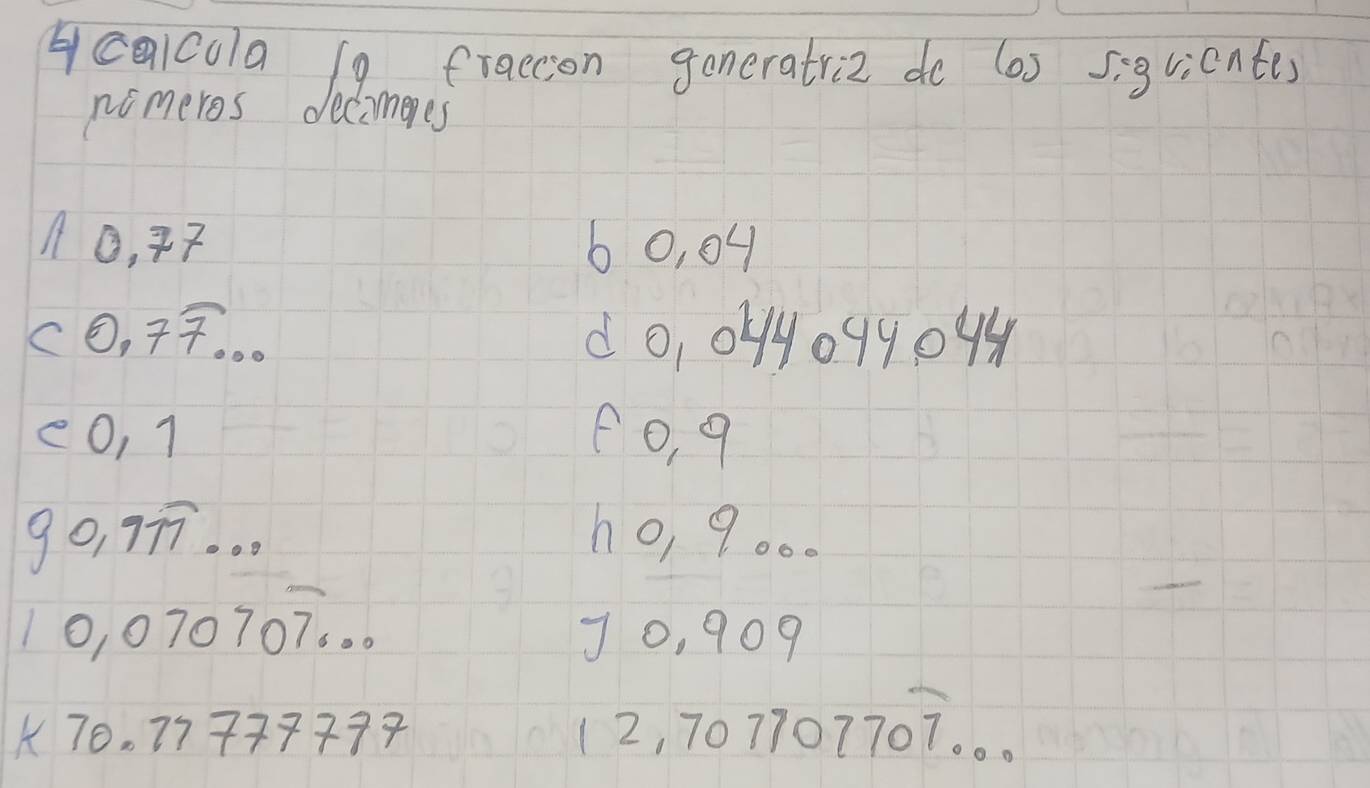 4 calcula la fraccion generatriz de los siguientes
números decimales
A 0,77 b 0,04
c 0,77̅... d 0,044044044
e 0,1 f 0,9
g 0,111̅... h 0,9...
I 0,070707̅... J 0,909
K 70.77777777 l 2,707707707̅...